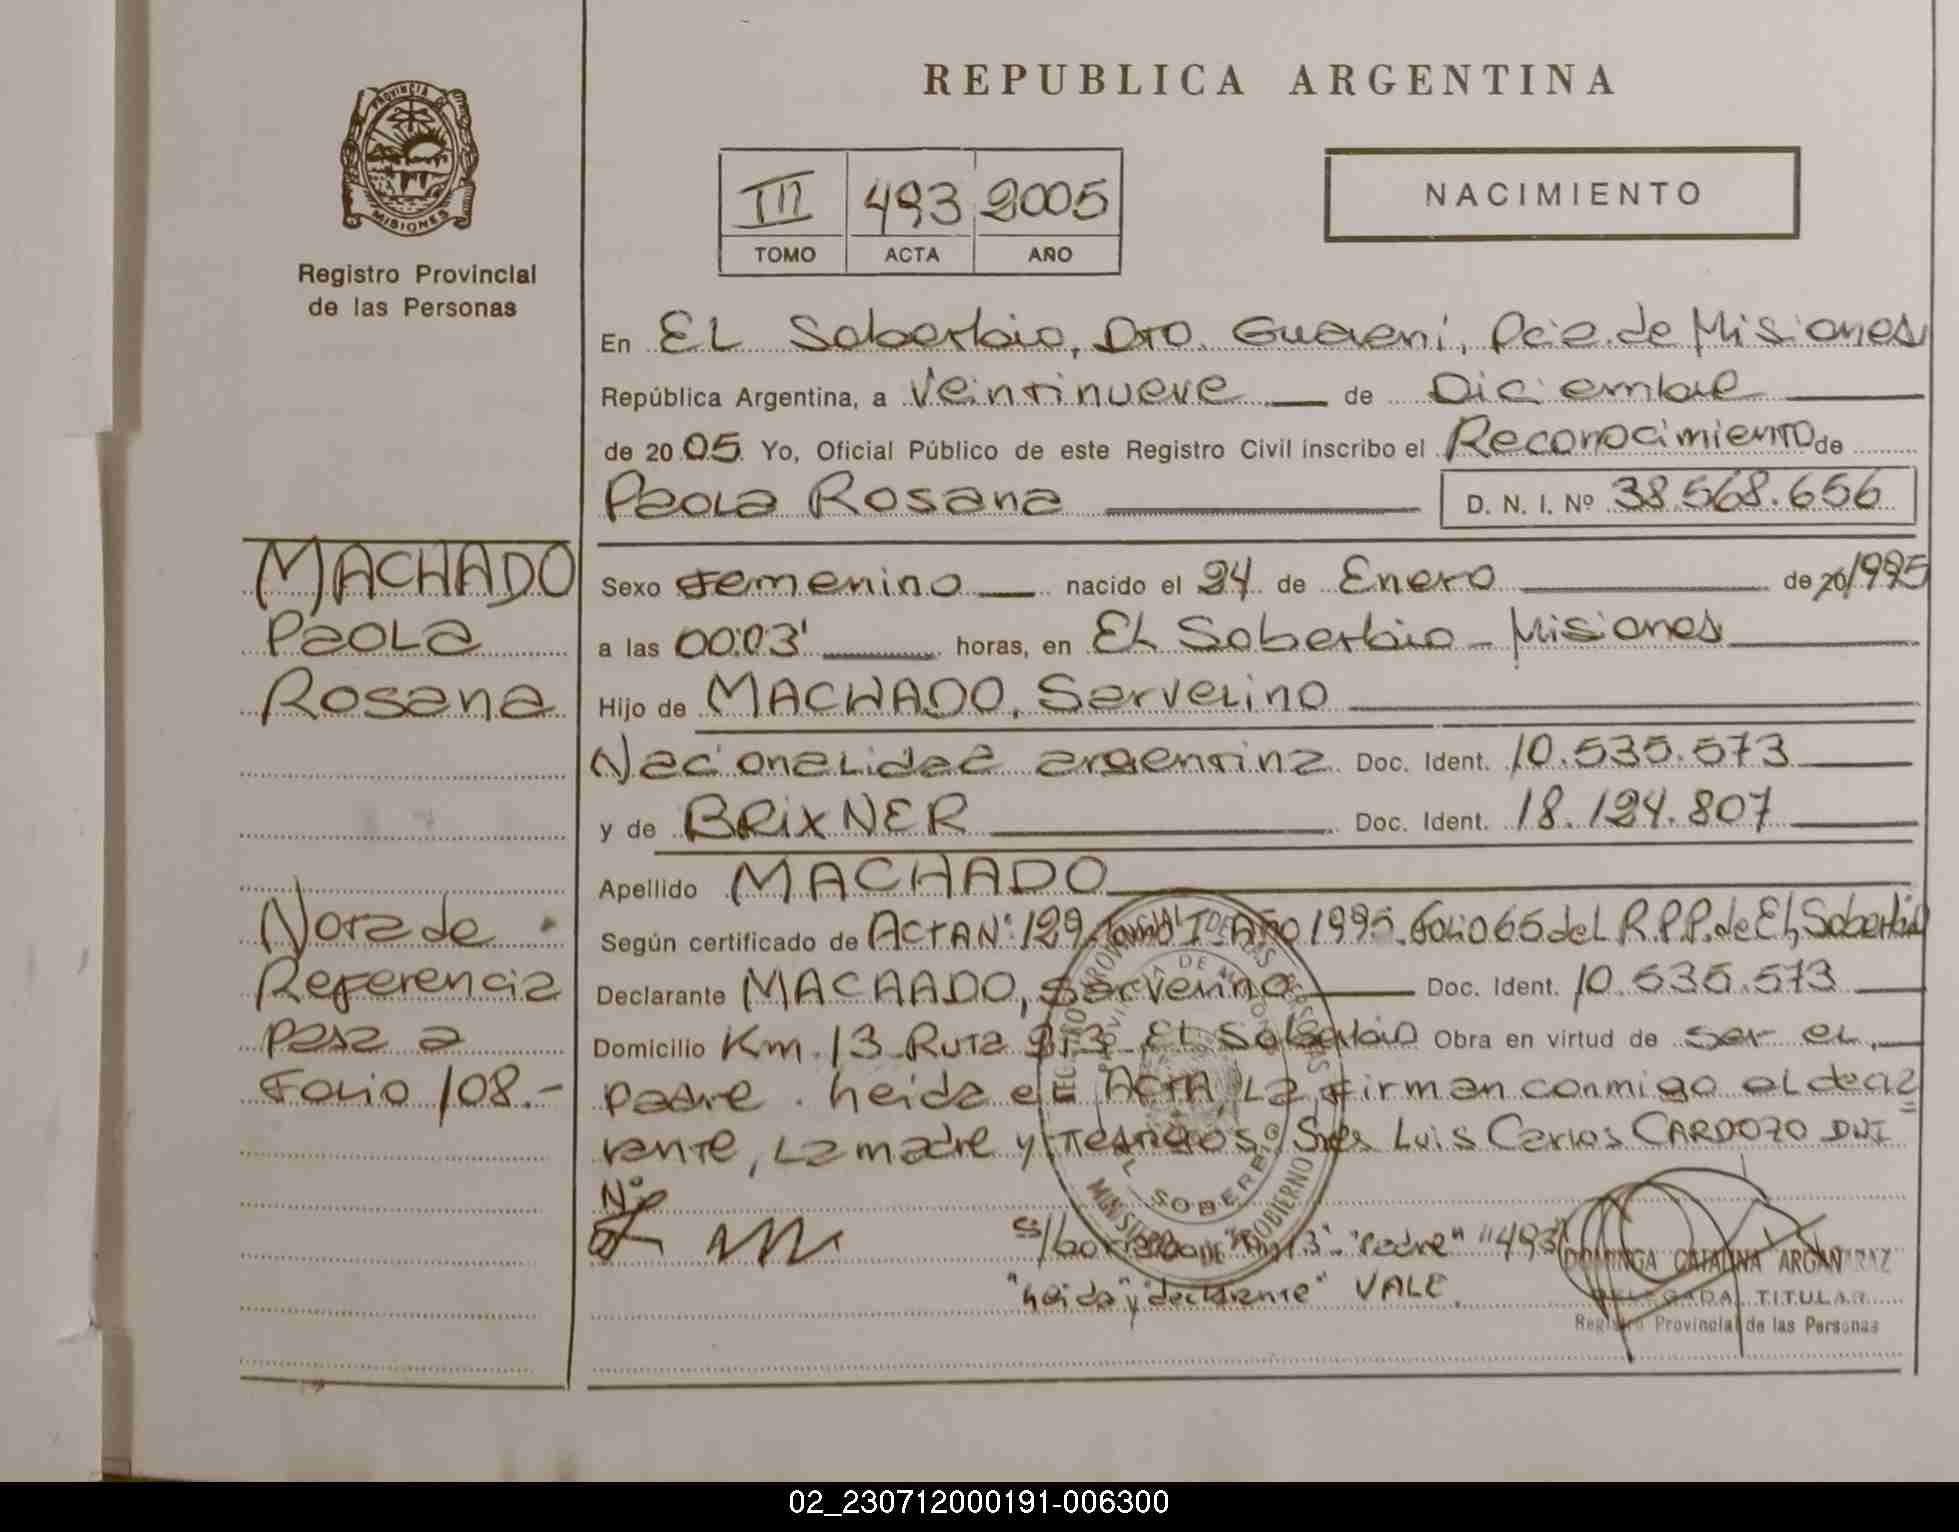 REPUBLICA ARGENTINA
PROVINCIA DE
MISIONES
Registro Provincial
de las Personas
III 493 2005
TOMO ACTA AÑO
NACIMIENTO
En EL Soberbio, Dto. Guarani, Pcia. de Misiones
República Argentina, a Veintinueve de Diciembre
de 20 05 Yo, Oficial Público de este Registro Civil inscribo el Reconocimiento de
Paola Rosana D. N. I. Nº 38.568.656
MACHADO
Paola
Rosana
Sexo Femenino nacido el 24 de Enero de 20/1995
a las 00:03' horas, en EL Soberbio - Misiones
Hijo de MACHADO, Servelino
Nacionalidad argentina Doc. Ident. 10.535.573
y de BRIXNER Doc. Ident. 18.124.807
Apellido MACHADO
Nota de
Referencia
pasa a
Folio 108.-
Según certificado de Acta Nº 129 Tomo I - Año 1995. Folio 65 del R.P.P. de EL Soberbio
Declarante MACHADO, Servelino Doc. Ident. 10.535.573
Domicilio Km. 13 Ruta 213 EL Soberbio Obra en virtud de ser el
padre. heida el ACTA, La firman conmigo el decla
rante, La madre y Testigos Sres Luis Carlos CARDOZO DNI
Nº
s/borrado "13" "Padre" "493"
"heida" y "declarante" VALE.
DOMINGA CATALINA ARGAÑARAZ
DELEGADA TITULAR
Registro Provincial de las Personas
EL SOBERBIO
02_230712000191-006300